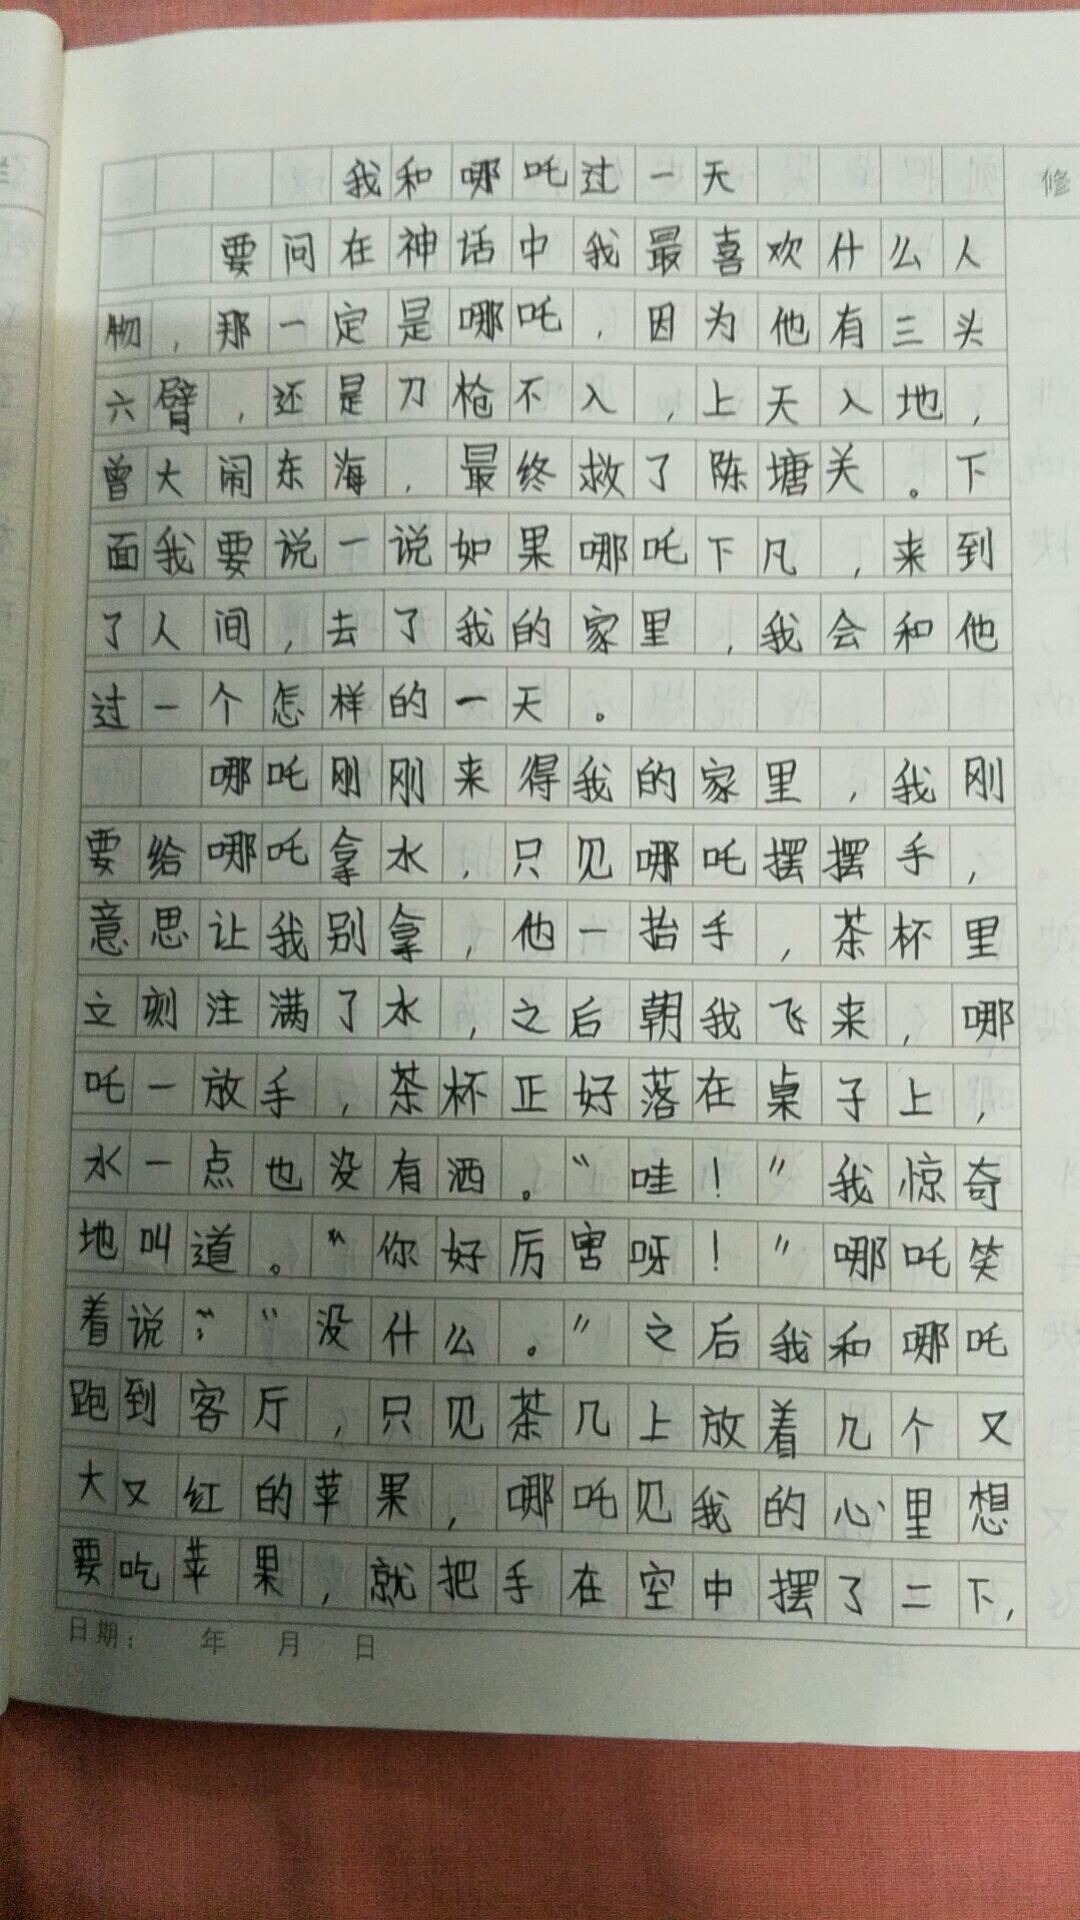 我和哪吒过一天
修
要问在神话中我最喜欢什么人
物，那一定是哪吒，因为他有三头
六臂，还是刀枪不入，上天入地，
曾大闹东海，最终救了陈塘关。下
面我要说一说如果哪吒下凡，来到
了人间，去了我的家里，我会和他
过一个怎样的一天。
哪吒刚刚来得我的家里，我刚
要给哪吒拿水，只见哪吒摆摆手，
意思让我别拿，他一抬手，茶杯里
立刻注满了水，之后朝我飞来，哪
吒一放手，茶杯正好落在桌子上，
水一点也没有洒。“哇！”我惊奇
地叫道。“你好厉害呀！”哪吒笑
着说：“没什么。”之后我和哪吒
跑到客厅，只见茶几上放着几个又
大又红的苹果，哪吒见我的心里想
要吃苹果，就把手在空中摆了二下，
日期： 年 月 日